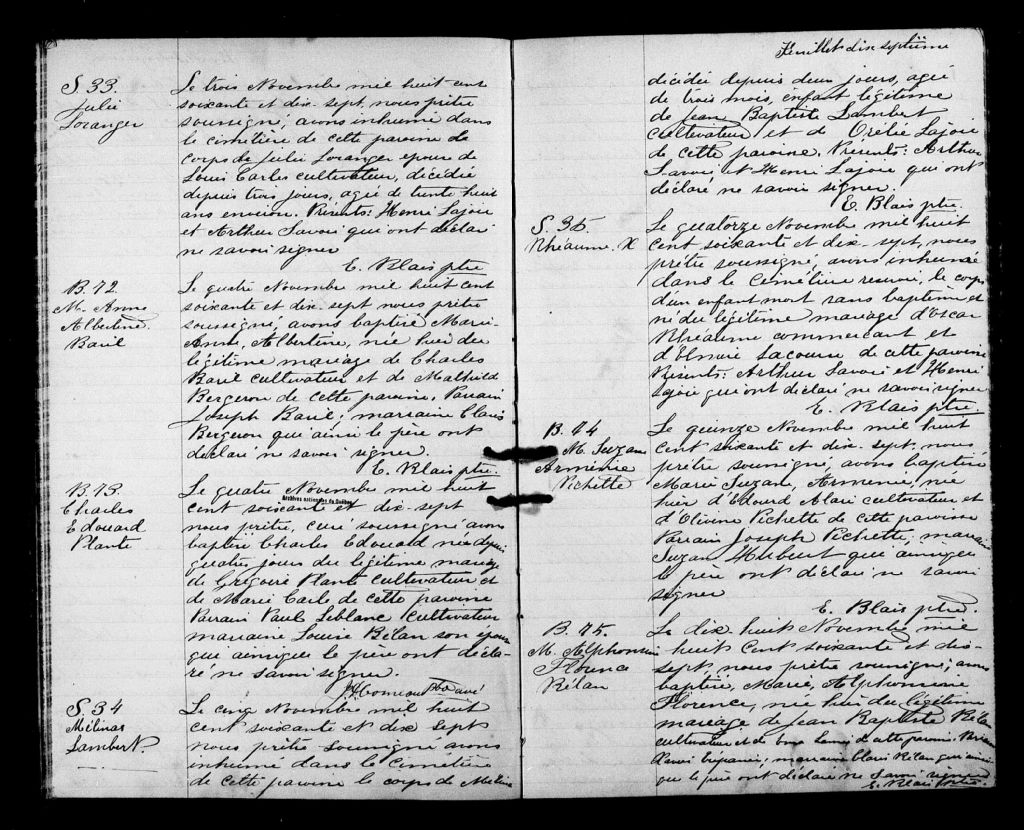 S. 33.
Julie
Loranger
Le trois Novembre mil huit cent
soixante et dix-sept, nous prêtre
soussigné, avons inhumé dans
le cimetière de cette paroisse le
corps de Julie Loranger épouse de
Louis Carles cultivateur, décédée
depuis trois jours, agée de trente huit
ans environ. Présents: Henri Lajoie
et Arthur Savoi qui ont déclaré
ne savoir signer
E. Blais ptre.
B. 72
M. Anne
Albertine
Baril
Le quatre Novembre mil huit cent
soixante et dix-sept nous prêtre
soussigné, avons baptisé Marie-
Anne, Albertine, née hier du
légitime mariage de Charles
Baril cultivateur et de Mathilde
Bergeron de cette paroisse. Parrain
Joseph Baril; marraine
Bergeron qui ainsi le père ont
déclaré ne savoir signer.
E. Blais ptre.
B. 73.
Charles
Edouard
Plante
Le quatre Novembre mil huit
Archives nationales du Québec
cent soixante et dix-sept
nous prêtre, curé soussigné avons
baptisé Charles Edouard né depuis
quatre jours du légitime mariage
de Grégoire Plante cultivateur et
de Marie Carle de cette paroisse
Parrain Paul Leblanc cultivateur
marraine Louise Bélan son épouse
qui ainsi que le père ont décla-
ré ne savoir signer.
Comeau Ptre curé
S. 34
Mélinas
Lambert.
Le cinq Novembre mil huit
cent soixante et dix sept
nous prêtre soussigné avons
inhumé dans le Cimetière
de cette paroisse le corps de
Feuillet dix septième
décédée depuis deux jours, agée
de trois mois, enfant légitime
de Jean Baptiste Lambert
cultivateur et de Orélie Lajoie
de cette paroisse. Présents: Arthur
Savoi et Henri Lajoie qui ont
déclaré ne savoir signer.
E. Blais ptre.
S. 35.
Rhéaume. X
Le quatorze Novembre mil huit
Cent soixante et dix-sept, nous
prêtre soussigné, avons inhumé
dans le Cimétière reservé, le corps
d'un enfant mort sans baptême et
né du légitime mariage d'Oscar
Rhéaume commercant et
d'Elmire Lacourse de cette paroisse
Présents: Arthur Savoi et Henri
Lajoie qui ont déclaré ne savoir signer
E. Blais ptre.
B. 74
M. Suzan
Arménie
Pichette
Le quinze Novembre mil huit
Cent soixante et dix-sept, nous
prêtre soussigné, avons baptisé
Marie Suzan, Armenie, née
hier d'Edouard Alari cultivateur et
d'Olivine Pichette de cette paroisse
Parrain Joseph Pichette, marraine
Suzan Hubert qui ainsi que
le père ont déclaré ne savoir
signer
E. Blais ptre.
B. 75.
M. Alphonsine
Florence
Bélan
Le dix huit Novembre mil
huit Cent soixante et dix-
sept, nous prêtre soussigné, avons
baptisé, Marie, Alphonsine
Florence, née hier du légitime
mariage de Jean Baptiste Bélan
cultivateur et de de cette paroisse.
marraine Bélan qui ainsi
que le père ont déclaré ne savoir signer
E. Blais ptre.